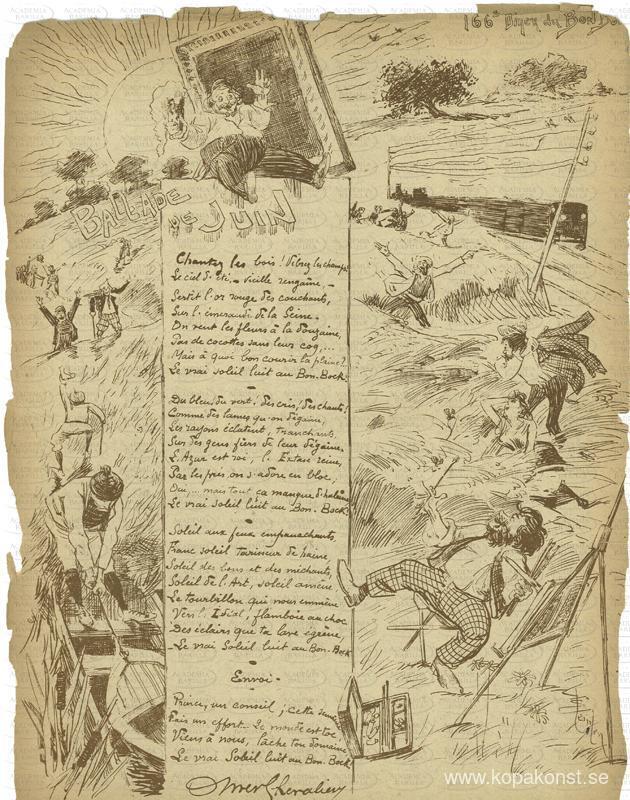 166e Diner du Bon Bo
BALLADE DE JUIN
Chantez les bois! Vibrez les champs
Le ciel d'été, – vieille rengaine, –
Sertit l'or rouge des couchants,
Sur l'émeraude de la Seine.
On vent les fleurs à la douzaine,
Pas de cocottes sans leur coq...
Mais à quoi bon courir la plaine?
Le vrai soleil luit au Bon-Bock.
Du bleu, du vert! des cris, des chants!
Comme des lames qu'on dégaine,
Les rayons éclatent, tranchants,
Sur des gens fiers de leur dégaine.
L'Azur est roi, l'Extase reine,
Par les prés on s'adore en bloc,
Oui,... mais tout ça manque d'haleine
Le vrai soleil luit au Bon-Bock!
Soleil aux feux empanachants,
Franc soleil tarisseur de haine,
Soleil des bons et des méchants,
Soleil de l'Art, soleil amène
Le tourbillon qui nous emmène
Vers l'Idéal, flamboie au choc
Des éclairs que ta lave égrène,
Le vrai Soleil luit au Bon-Bock
Envoi –
Prince, un conseil; cette
Fais un effort. Le monde est toc
Viens à nous, lâche ton domaine
Le vrai Soleil luit au Bon. Bock
Chevalier
www.kopakonst.se
ACADEMIA BARILLA